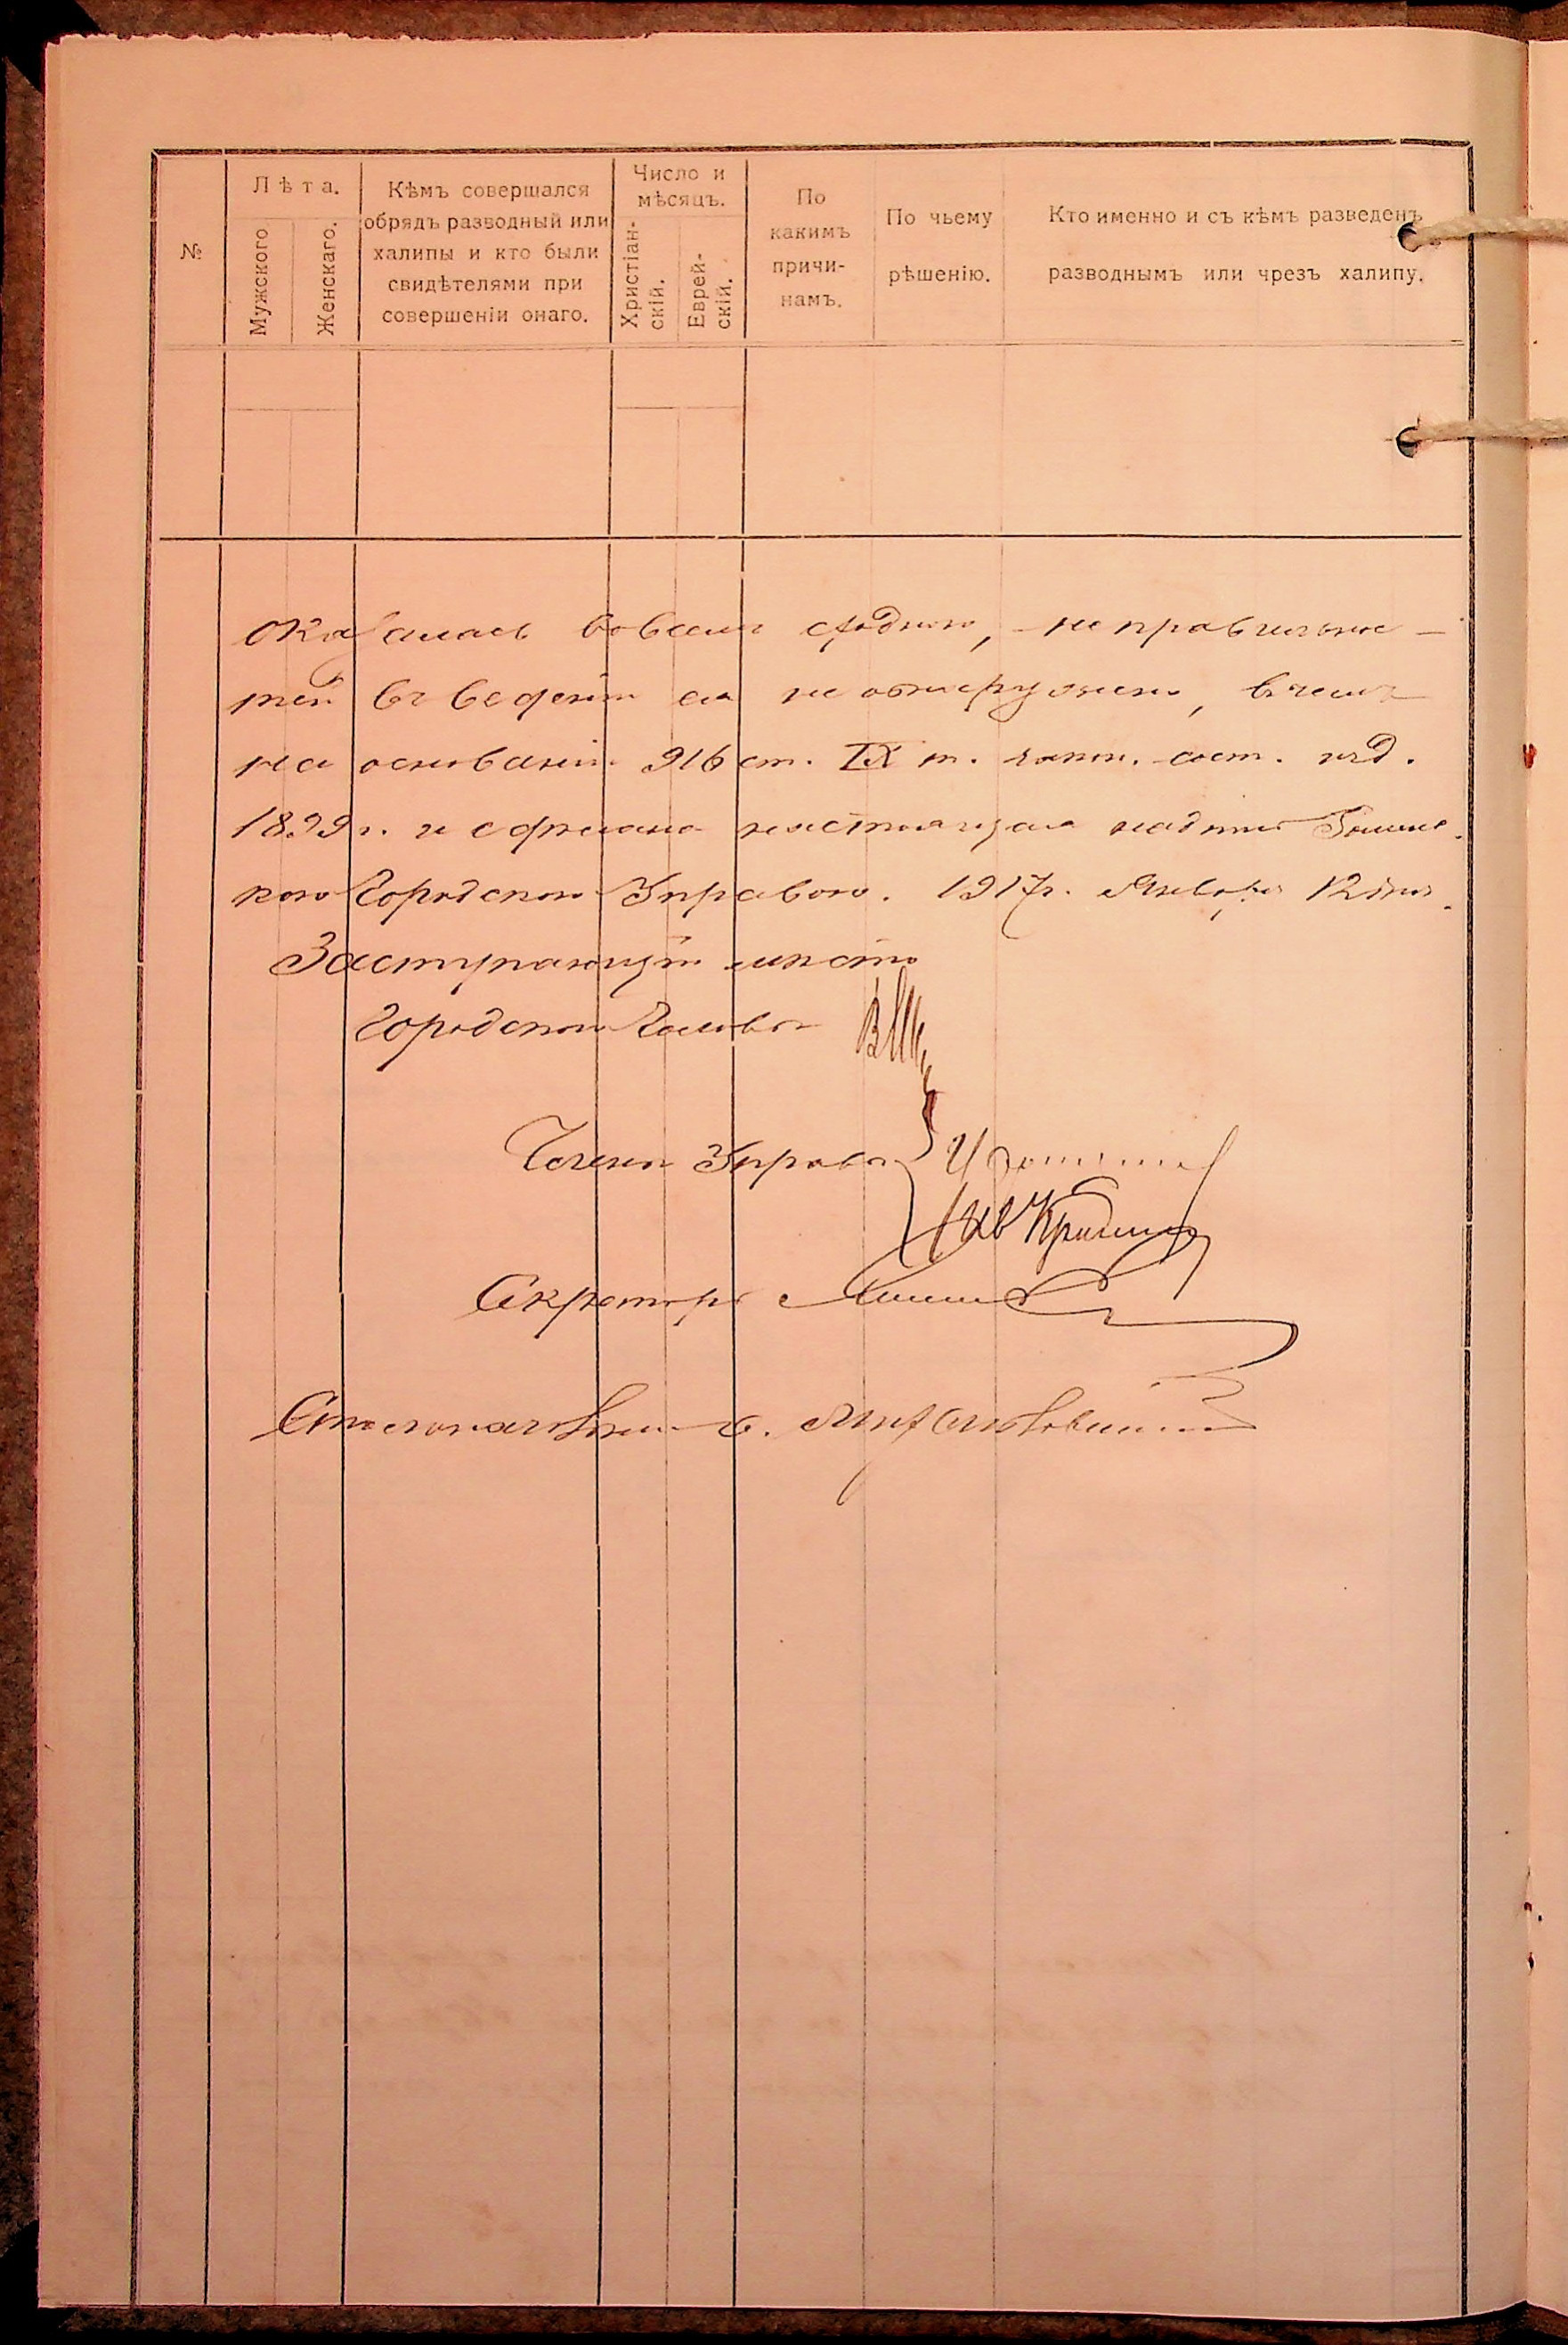 №
Лѣта.
Мужского
Женскаго.
Кѣмъ совершался
обрядъ разводный или
халипы и кто были
свидѣтелями при
совершеніи онаго.
Число и
мѣсяцъ.
Христіан-
скій.
Еврей-
скій.
По
какимъ
причи-
намъ.
По чьему
рѣшенію.
Кто именно и съ кѣмъ разведенъ
разводнымъ или чрезъ халипу.
оказалась во всемъ сходною, неправильнос-
тей въ веденіи ея не обнаружено, въ чемъ
на основаніи 916 ст. IX т. зак. сост. изд.
1899 г. и сдѣлана настоящая надпись
кою Городскою Управою. 1917 г. Января 12 дня.
Заступающій мѣсто
Городского Головы
Члены Управы
Секретарь
Столоначальникъ